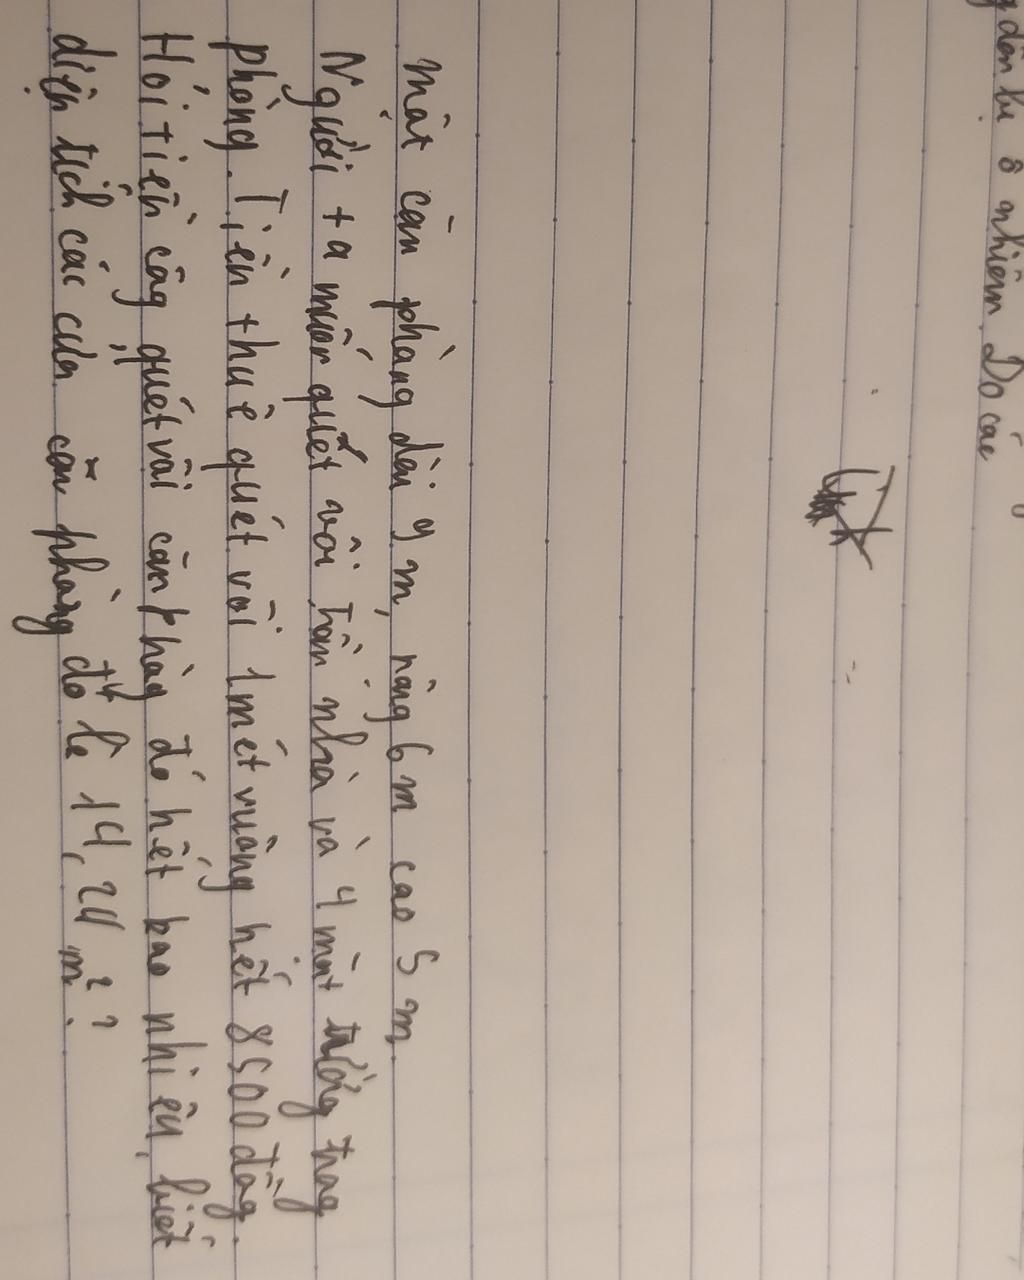 dân bị ô nhiễm. Do các
Một căn phòng dài 9 m, rông 6 m cao 5 m
Người ta muốn quét vôi trần nhà và 4 mặt tường trog
phòng. Tiền thuê quét vôi 1 mét vuông hết 8500 đồng.
Hỏi tiền côg quét vôi căn phòg đó hết bao nhiêu, biết
diện tích các cửa căn phòng đó là 14,24 m²?